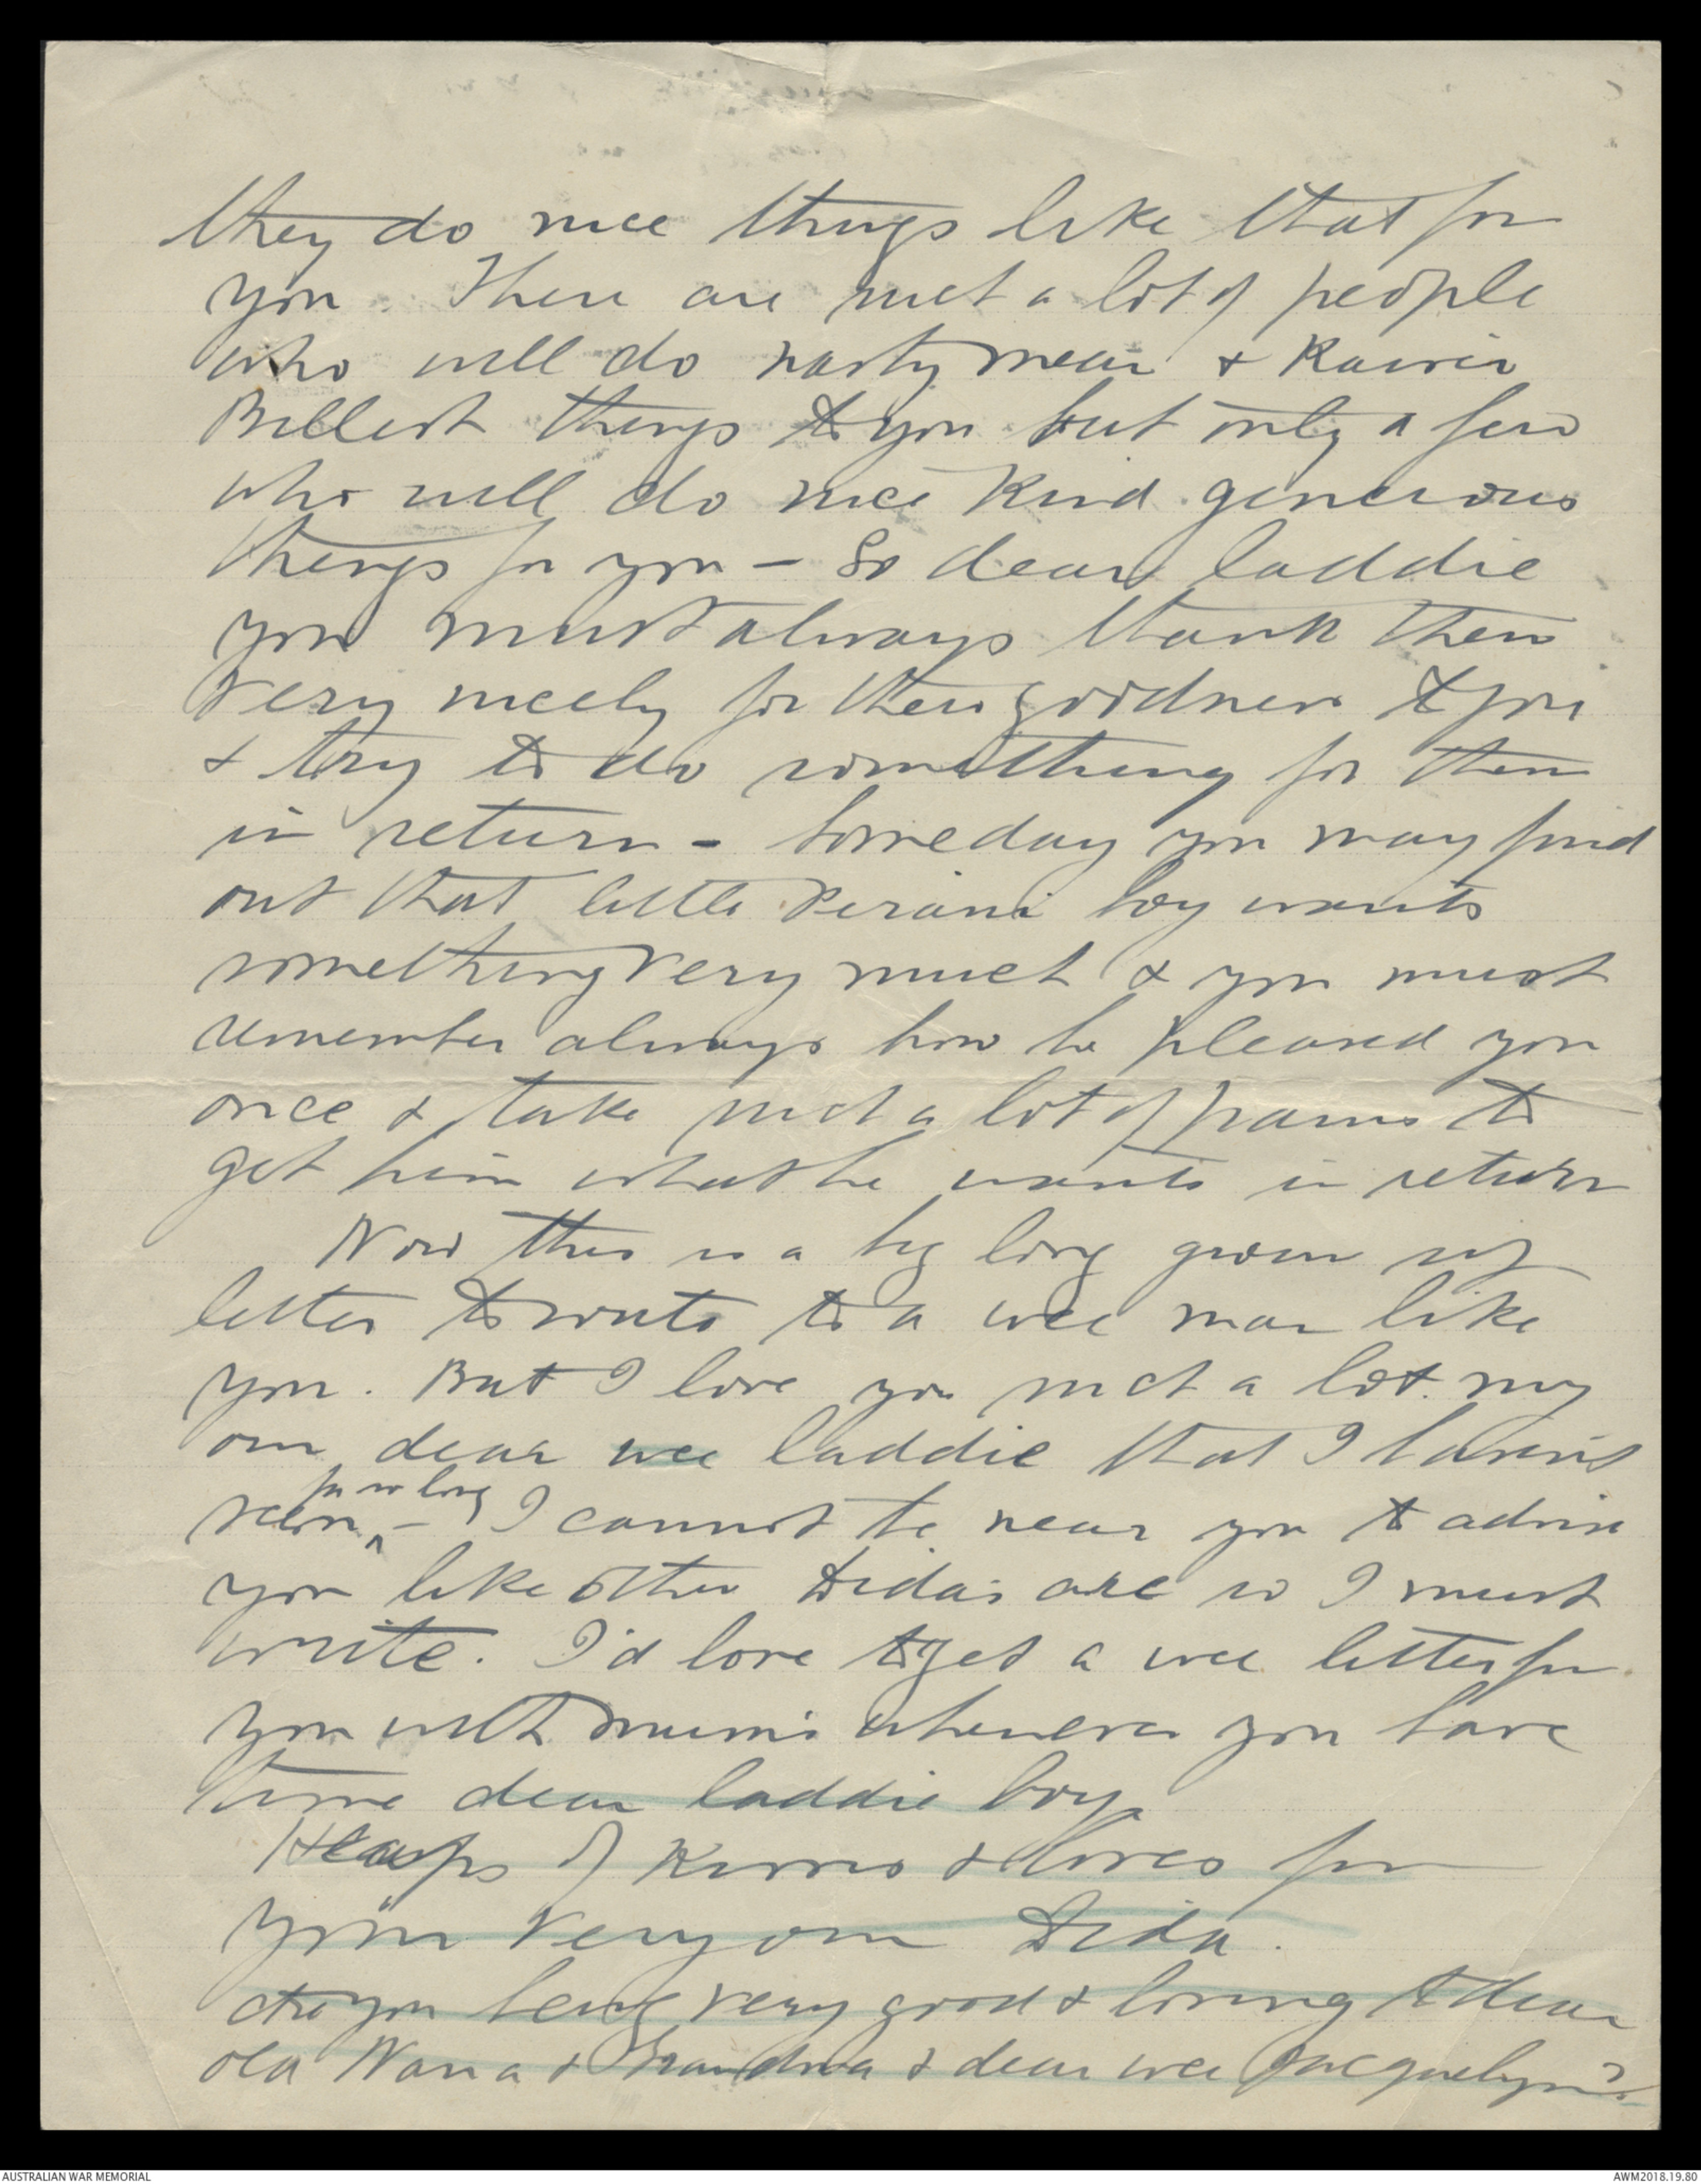 they do nice things like that for
you. There are just a lot of people
who will do nasty mean & Kaiser
Billish things to you but only a few
who will do nice kind generous
things for you - So dear laddie
you must always thank them
very nicely for their goodness to you
& try to do something for them
in return - Someday you may find
out that little boy wants
something very much & you must
remember always how he pleased you
once & take just a lot of pains to
get him what he wants in return
Now this is a big long grown up
letter to write to a wee man like
you. But I love you just a lot my
own dear wee laddie that I havent
seen for so long - I cannot be near you to advise
you like other Dida's are so I must
write. I'd love to get a wee letter fm
you with mum's whenever you have
time dear laddie boy
Heaps of kisses & loves fm
your very own Dida.
Are you being very good & loving to dear
old Nana & Grandma & dear wee Jacquelyn?
AUSTRALIAN WAR MEMORIAL
AWM2018.19.80